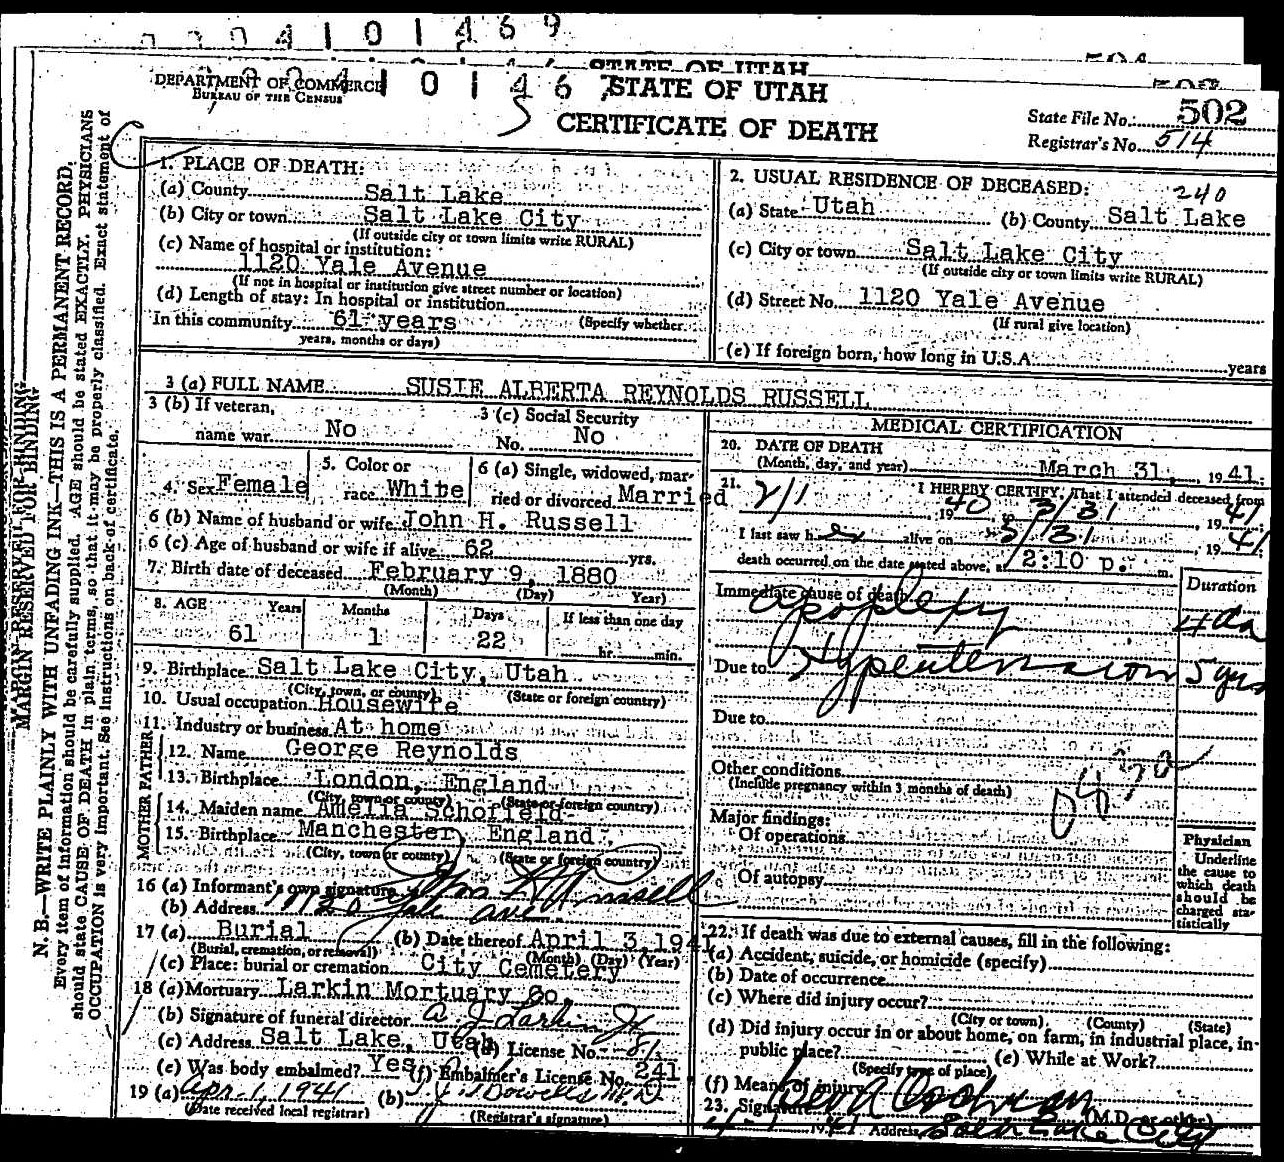 0 0 0 4 1 0 1 4 6 9
STATE OF UTAH
DEPARTMENT OF COMMERCE
BUREAU OF THE CENSUS
4 1 0 1 4 6 7
STATE OF UTAH
CERTIFICATE OF DEATH
State File No. 502
Registrar's No. 514
MARGIN RESERVED FOR BINDING
N. B.—WRITE PLAINLY WITH UNFADING INK—THIS IS A PERMANENT RECORD.
Every item of information should be carefully supplied. AGE should be stated EXACTLY. PHYSICIANS
should state CAUSE OF DEATH in plain terms, so that it may be properly classified. Exact statement of
OCCUPATION is very important. See instructions on back of certificate.
1. PLACE OF DEATH:
(a) County Salt Lake
(b) City or town Salt Lake City
(If outside city or town limits write RURAL)
(c) Name of hospital or institution:
1120 Yale Avenue
(If not in hospital or institution give street number or location)
(d) Length of stay: In hospital or institution
In this community 61 years (Specify whether
years, months or days)
2. USUAL RESIDENCE OF DECEASED:
240
(a) State Utah (b) County Salt Lake
(c) City or town Salt Lake City
(If outside city or town limits write RURAL)
(d) Street No. 1120 Yale Avenue
(If rural give location)
(e) If foreign born, how long in U.S.A. years
3 (a) FULL NAME SUSIE ALBERTA REYNOLDS RUSSELL
3 (b) If veteran, name war No
3 (c) Social Security No. No
4. Sex Female
5. Color or race White
6 (a) Single, widowed, married or divorced Married
6 (b) Name of husband or wife John H. Russell
6 (c) Age of husband or wife if alive 62 yrs.
7. Birth date of deceased February 9, 1880
(Month) (Day) Year)
8. AGE Years Months Days If less than one day
61 1 22 hr. min.
9. Birthplace Salt Lake City, Utah
(City, town, or county) (State or foreign country)
10. Usual occupation Housewife
11. Industry or business At home
FATHER
12. Name George Reynolds
13. Birthplace London, England
(City, town or county) (State or foreign country)
MOTHER
14. Maiden name Amelia Schofield
15. Birthplace Manchester, England
(City, town or county) (State or foreign country)
16 (a) Informant's own signature Russell
(b) Address 1120 Yale Ave
17 (a) Burial (b) Date thereof April 3, 1941
(Burial, cremation, or removal) (Month) (Day) (Year)
(c) Place: burial or cremation City Cemetery
18 (a) Mortuary Larkin Mortuary Co.
(b) Signature of funeral director A. J. Larkin Jr
(c) Address Salt Lake, Utah (d) License No. 81
(e) Was body embalmed? Yes (f) Embalmer's License No. 241
19 (a) Apr. 1, 1941 (b)
(Date received local registrar) (Registrar's signature)
MEDICAL CERTIFICATION
20. DATE OF DEATH
(Month, day, and year) March 31, 1941.
21. I HEREBY CERTIFY, That I attended deceased from
2/1 1940 to 3/31, 1941
I last saw her alive on 3/31, 1941
death occurred on the date stated above, at 2:10 p. m.
Immediate cause of death Duration
Apoplexy 4 da
Due to Hypertension 5 yrs
Due to
Other conditions
(Include pregnancy within 3 months of death)
Major findings:
Of operations
Of autopsy
Physician
Underline
the cause to
which death
should be
charged sta-
tistically
22. If death was due to external causes, fill in the following:
(a) Accident, suicide, or homicide (specify)
(b) Date of occurrence
(c) Where did injury occur?
(City or town) (County) (State)
(d) Did injury occur in or about home, on farm, in industrial place, in-
public place? (e) While at Work?
(Specify type of place)
(f) Means of injury
23. Signature Cochran (M.D. or other)
4-1 1941 Address Salt Lake City